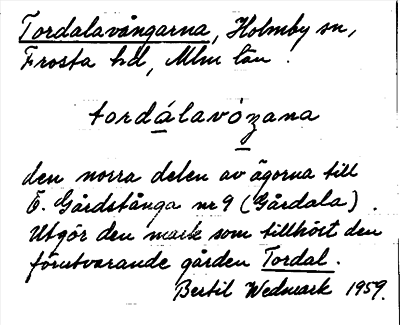 Tordalavångarna, Holmby sn,
Frosta hd, Mlm län.
tordálavóʒana
den norra delen av ägorna till
Ö. Gårdstånga nr 9 (Gårdala).
Utgör den mark som tillhört den
förutvarande gården Tordal.
Bertil Wedmark 1959.